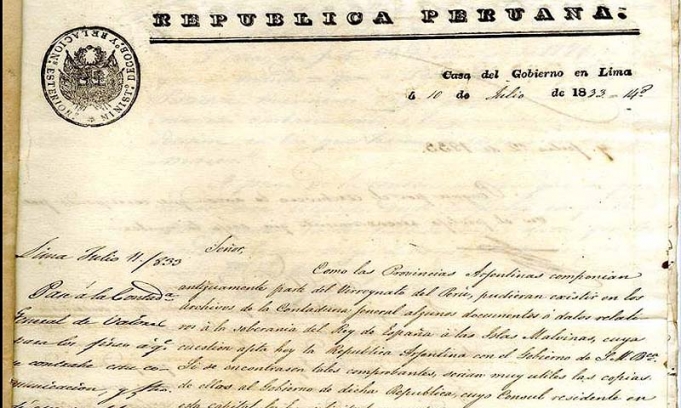 REPUBLICA PERUANA.
MINIST.º DE GOB.º Y RELACION.ˢ ESTERIOR.ˢ
Casa del Gobierno en Lima
á 10 de Julio de 1833-14º
Lima Julio 11/833
Pase á la Contad.ª
General de Valores
para los fines á q.e
contraher esta co-
municacion, y
Señor,
Como las Provincias Argentinas componian
antiguamente parte del Virreynato del Perú, pudieran existir en los
archivos de la Contaduria general algunos documentos ó datos relati-
vos á la soberania del Rey de España á las Islas Malvinas, cuya
cuestion agita hoy la Republica Argentina con el Gobierno de S.M.B.
Si se encontrasen tales comprobantes, serian muy utiles las copias
de ellos al Gobierno de dicha Republica, cuyo Consul residente en
esta capital